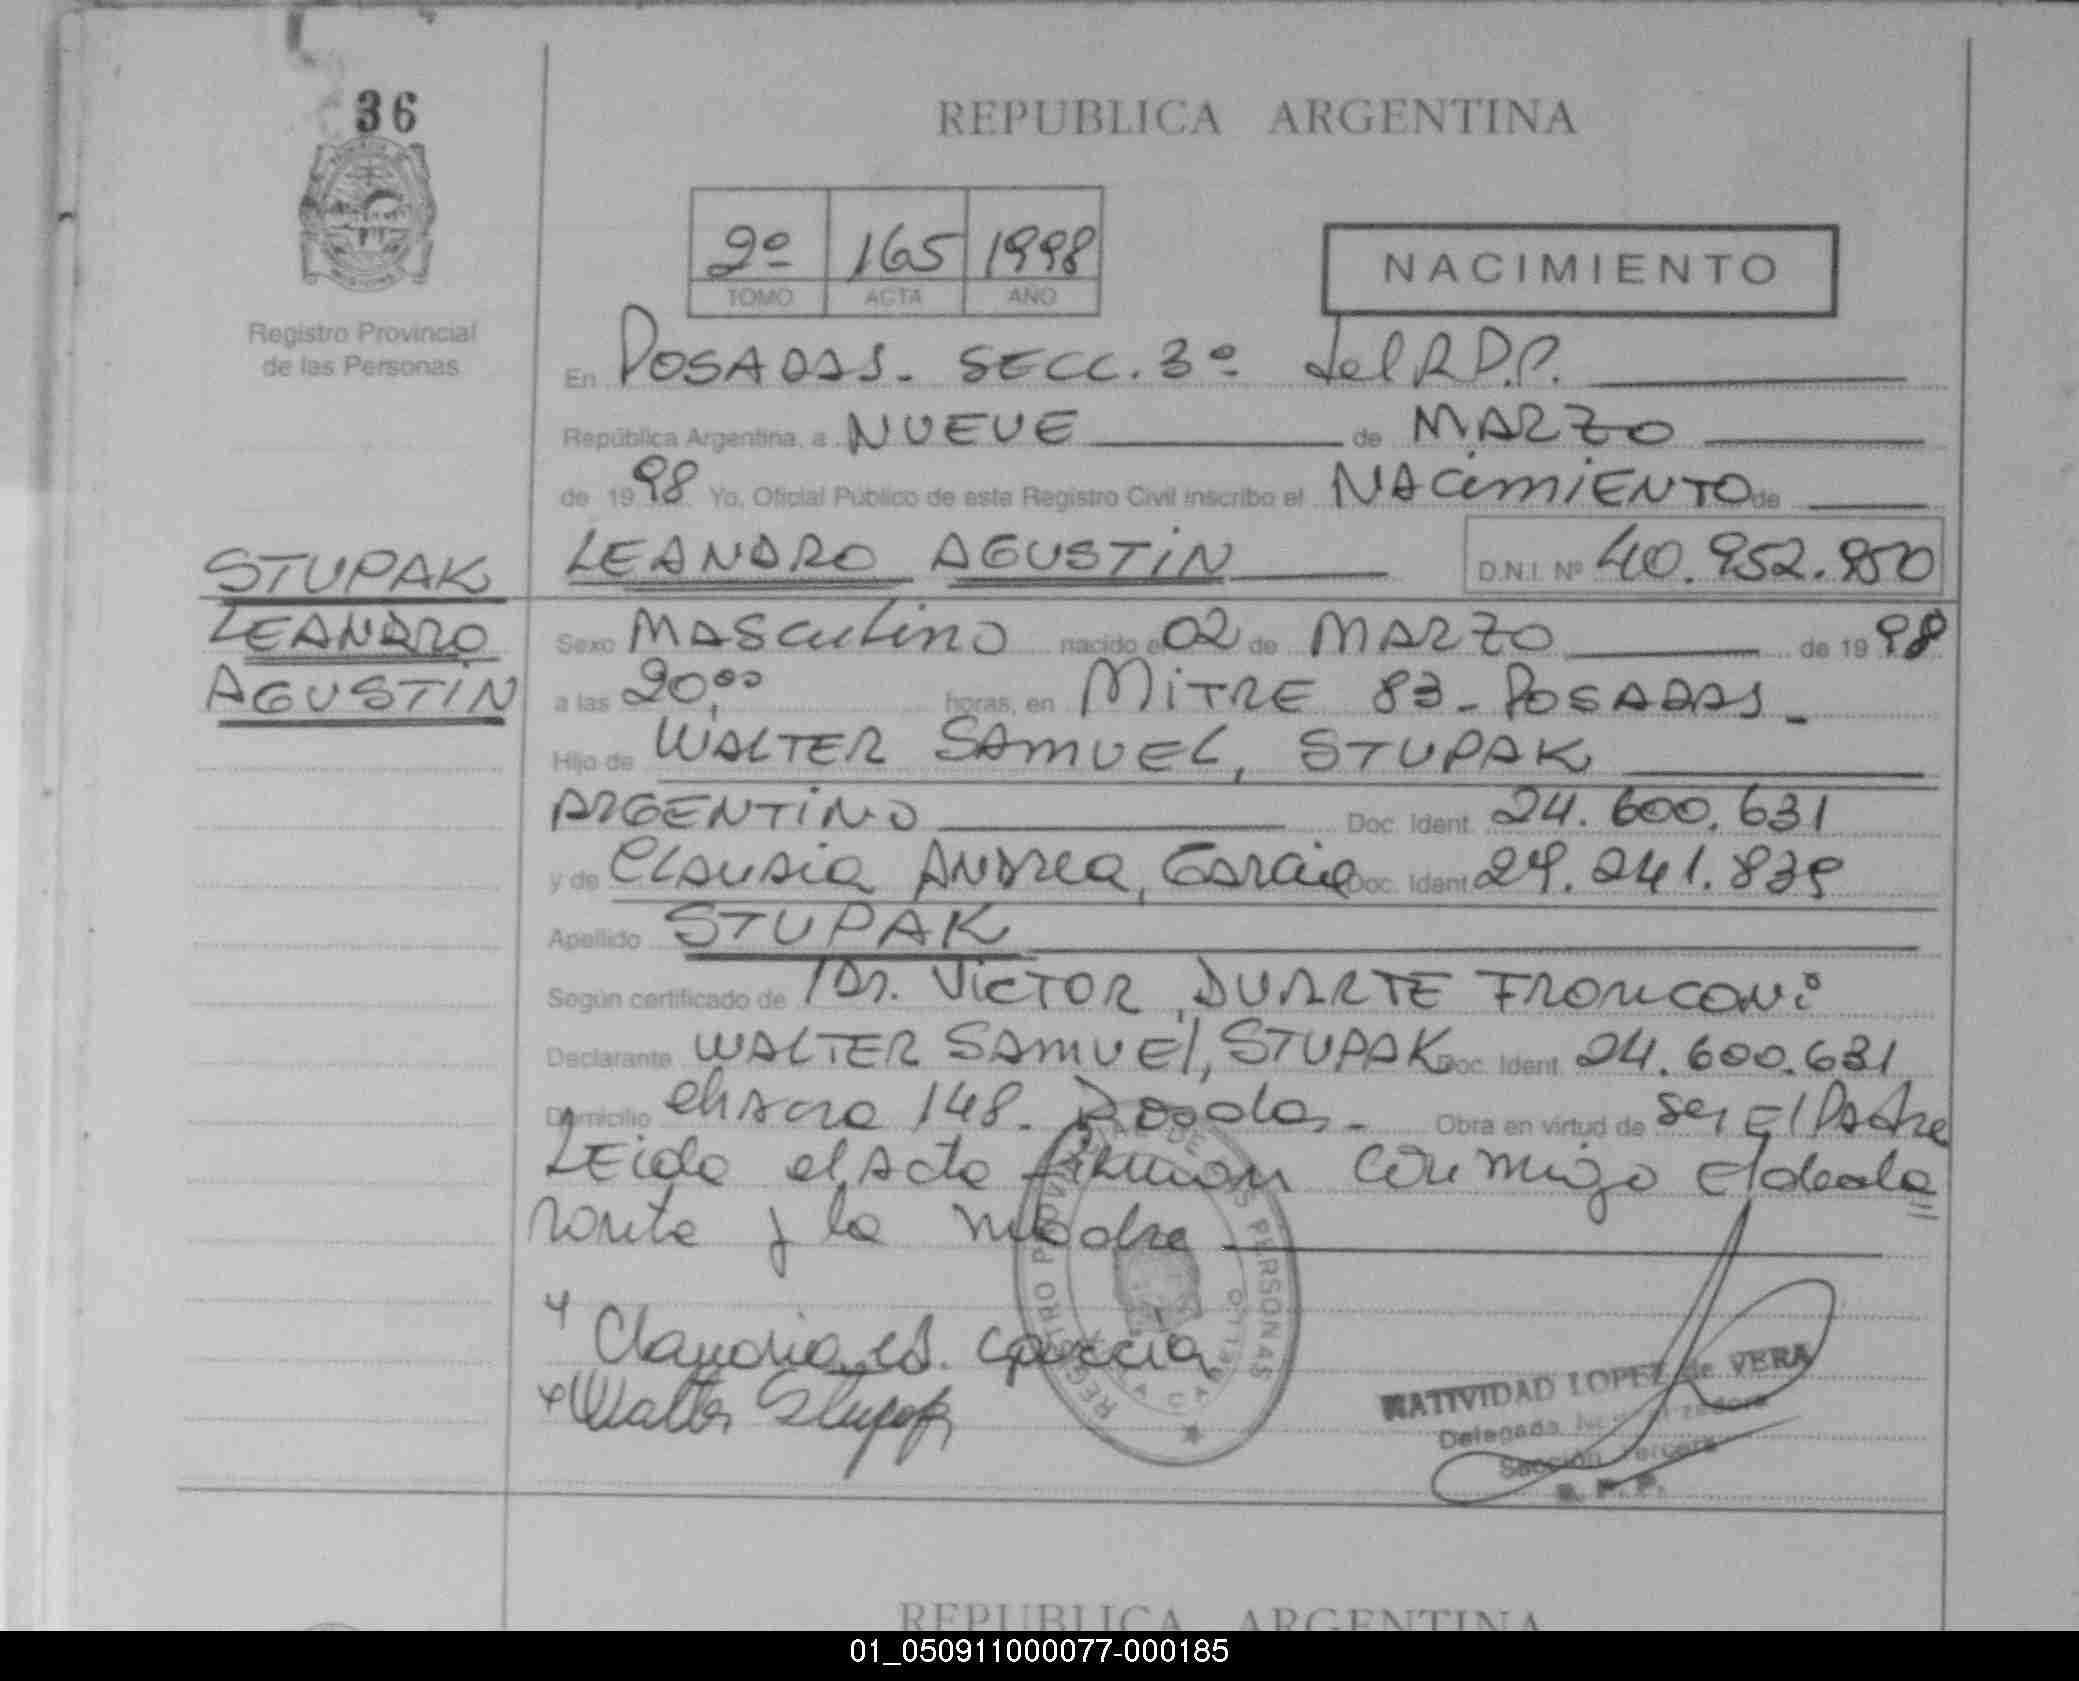 36
REPUBLICA ARGENTINA
2º 165 1998
TOMO ACTA AÑO
NACIMIENTO
Registro Provincial
de las Personas
En POSADAS. SECC. 3º del R.P.P.
República Argentina, a NUEVE de MARZO
de 1998 Yo, Oficial Público de este Registro Civil inscribo el NACIMIENTO de
STUPAK
LEANDRO
AGUSTIN
LEANDRO AGUSTIN D.N.I. Nº 40.952.950
Sexo MASCULINO nacido el 02 de MARZO de 1998
a las 20,00 horas, en MITRE 83 - POSADAS -
Hijo de WALTER SAMUEL, STUPAK
ARGENTINO Doc. Ident. 24.600.631
y de CLAUDIA ANDREA, GARCIA Doc. Ident. 29.241.839
Apellido STUPAK
Según certificado de Dr. VICTOR DUARTE
Declarante WALTER SAMUEL, STUPAK Doc. Ident. 24.600.631
Domicilio 148. Posadas - Obra en virtud de ser el Padre
Leida el acta firman conmigo el decla
rante y la madre
Claudia A. Garcia
Walter Stupak
REGISTRO PROVINCIAL DE LAS PERSONAS
NATIVIDAD LOPEZ de VERA
Delegada
Sección Tercera
R. P. P.
REPUBLICA ARGENTINA
01_050911000077-000185